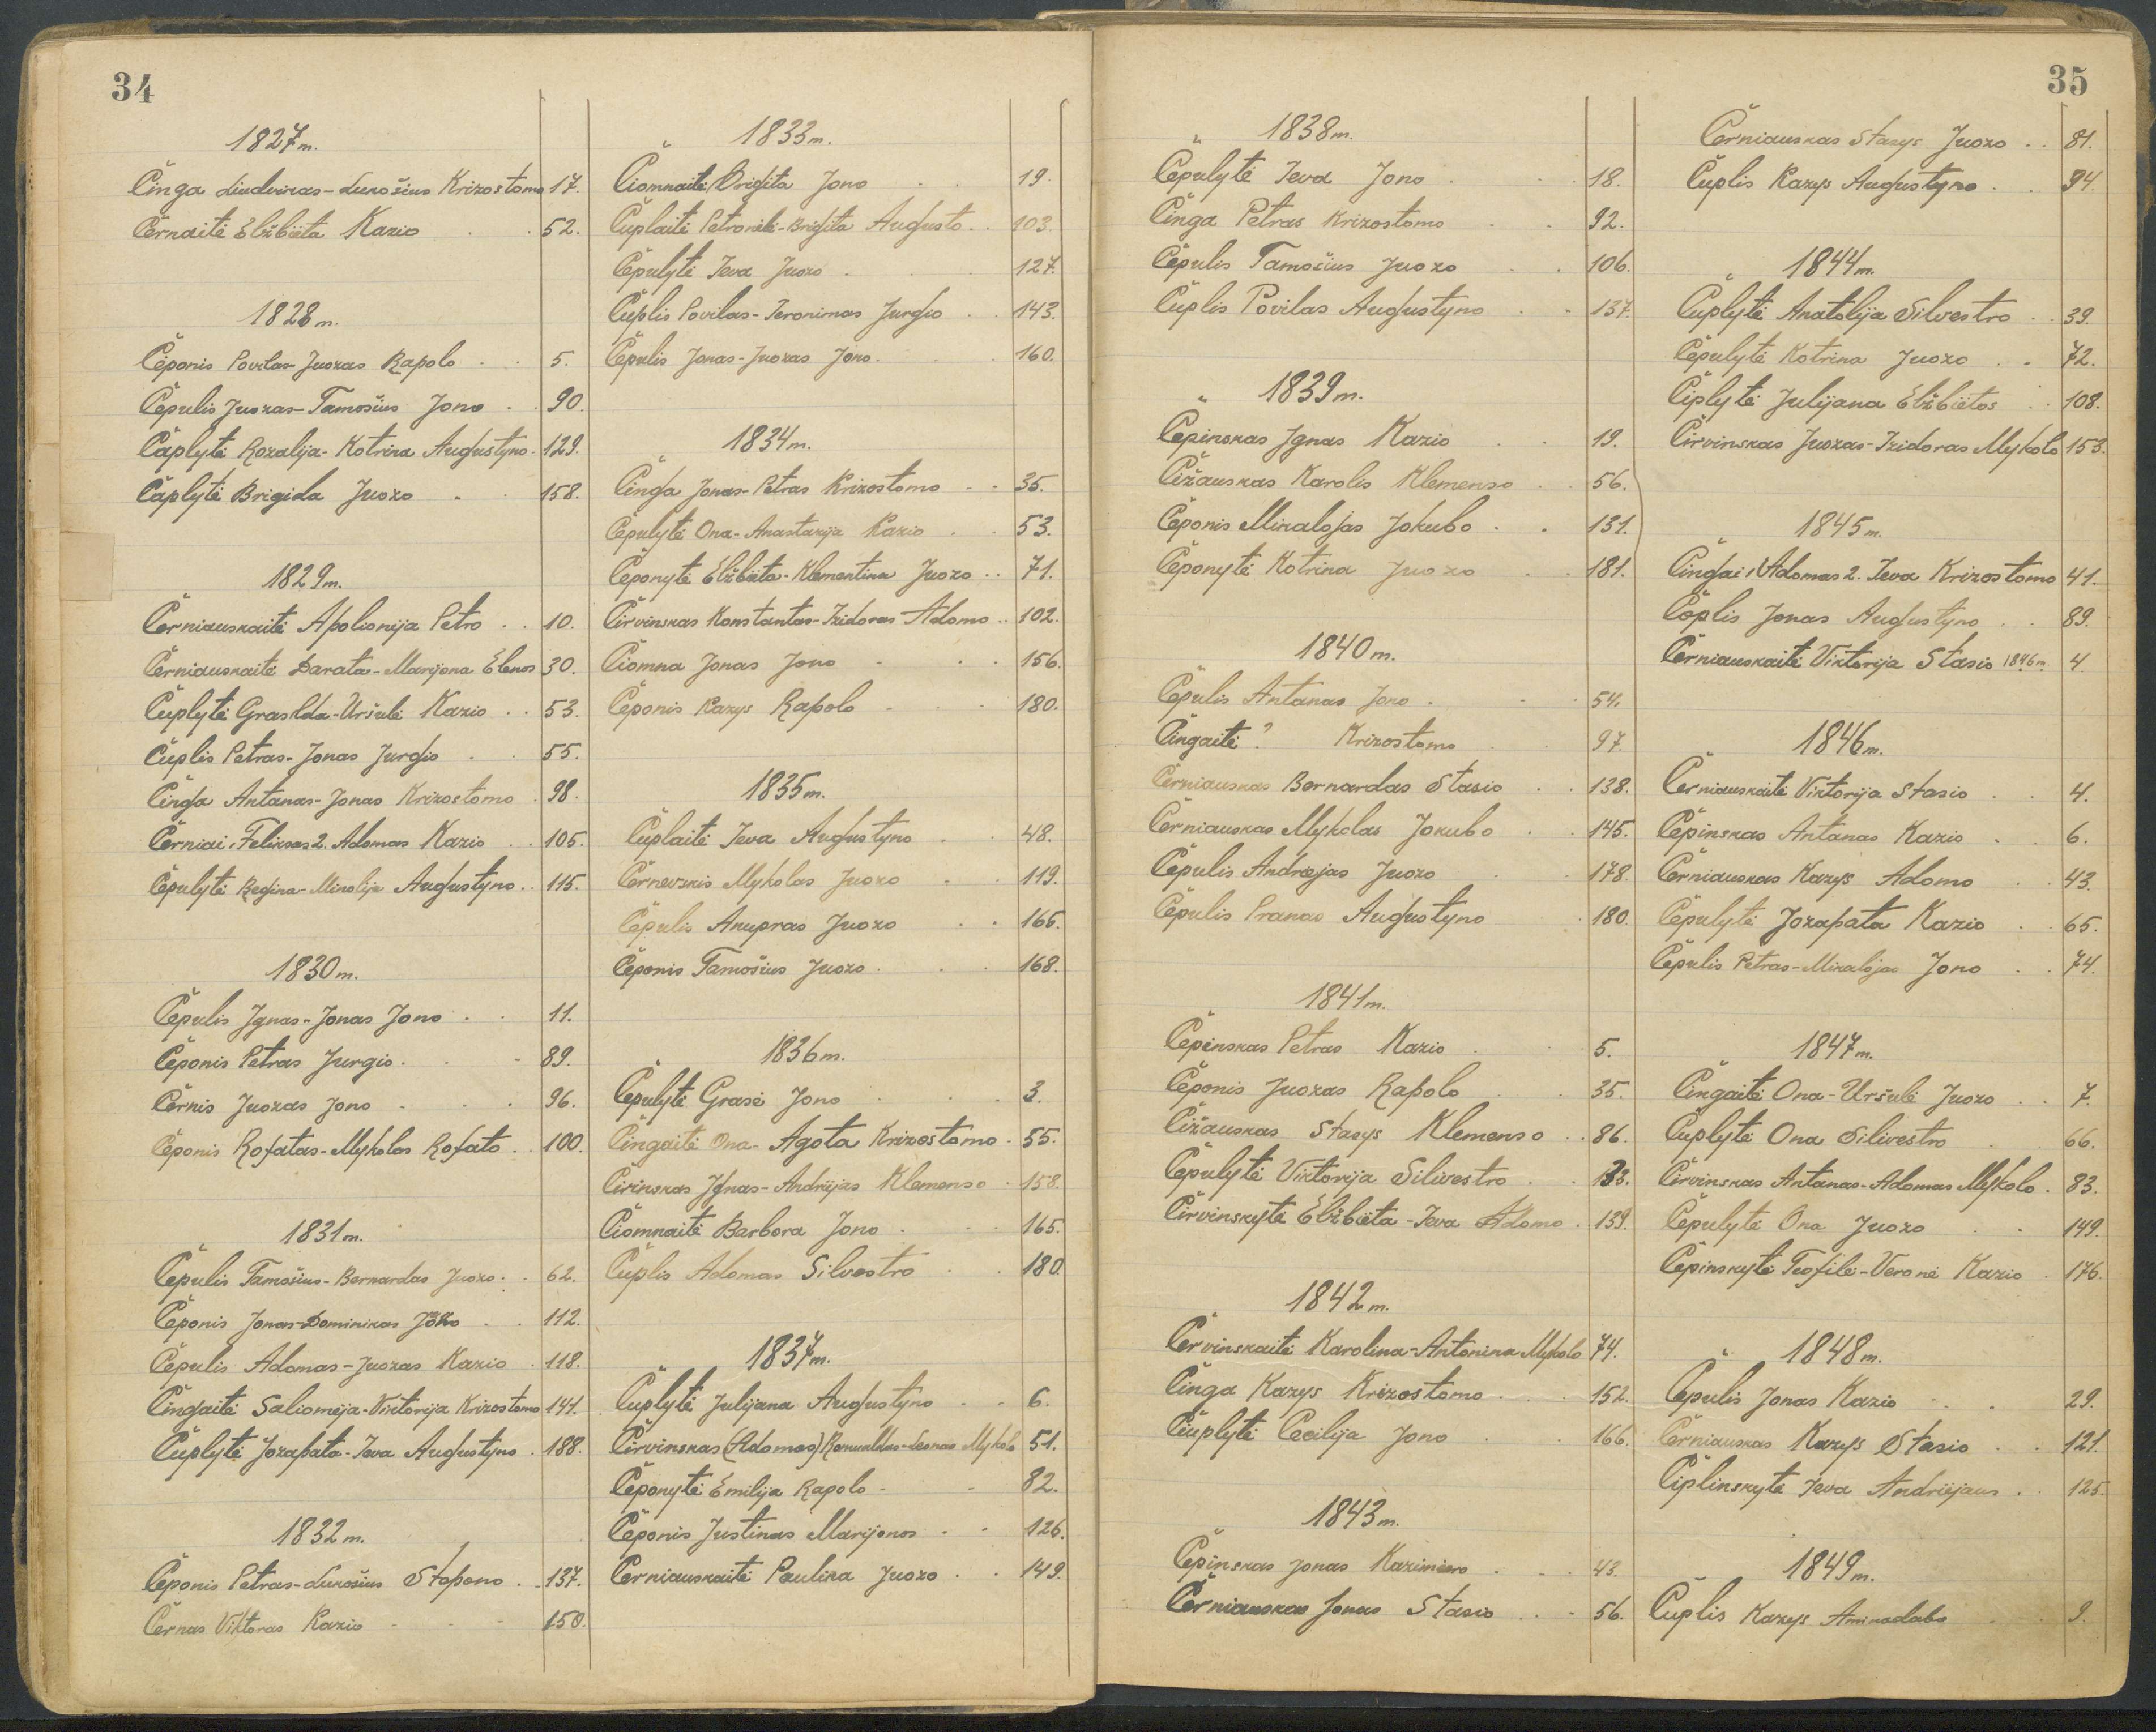 34
1827 m.
Činga Liudvinas-Lukošius Krizostomo 17.
Černaitė Elžbieta Kazio 52.
1828 m.
Čeponis Povilas-Juozas Rapolo 5.
Čepulis Juozas-Tamošius Jono 90.
Čaplytė Rozalija-Kotrina Augustyno 129.
Čaplytė Brigida Juozo 158.
1829 m.
Černiauskaitė Apolionija Petro 10.
Černiauskaitė Darata-Marijona Elenos 30.
Čuplytė Grasilda-Uršulė Kazio 53.
Čuplis Petras-Jonas Jurgio 55.
Činga Antanas-Jonas Krizostomo 98.
Černiai 1 Feliksas 2. Adomas Kazio 105.
Čepulytė Regina-Mikolija Augustyno 115.
1830 m.
Čepulis Ignas-Jonas Jono 11.
Čeponis Petras Jurgio 89.
Černis Juozas Jono 96.
Čeponis Rofatas-Mykolas Rofato 100.
1831 m.
Čepulis Tamošius-Bernardas Juozo 62.
Čeponis Jonas-Dominikas 112.
Čepulis Adomas-Juozas Kazio 118.
Čingaitė Saliomėja-Viktorija Krizostomo 141.
Čuplytė Jozapata-Ieva Augustyno 188.
1832 m.
Čeponis Petras-Lukošius Stapono 137.
Černas Viktoras Kazio 150.
1833 m.
Čiomnaitė Brigita Jono 19.
Čuplaitė Petronėlė-Brigita Augusto 103.
Čepulytė Ieva Juozo 127.
Čuplis Povilas-Jeronimas Jurgio 143.
Čepulis Jonas-Juozas Jono 160.
1834 m.
Činga Jonas-Petras Krizostomo 35.
Čepulytė Ona-Anastazija Kazio 53.
Čeponytė Elžbieta-Klementina Juozo 71.
Čirvinskas Konstantas-Izidoras Adomo 102.
Čiomna Jonas Jono 156.
Čeponis Kazys Rapolo 180.
1835 m.
Čuplaitė Ieva Augustyno 48.
Černevskis Mykolas Juozo 119.
Čepulis Anupras Juozo 166.
Čeponis Tamošius Juozo 168.
1836 m.
Čepulytė Grasė Jono 3.
Čingaitė Ona-Agota Krizostomo 55.
Čirinskas Ignas-Andriejas Klemenso 158.
Čiomnaitė Barbora Jono 165.
Čuplis Adomas Silvestro 180.
1837 m.
Čuplytė Julijana Augustyno 6.
Čirvinskas (Adomas) Romualdas-Leonas Mykolo 51.
Čeponytė Emilija Rapolo 82.
Čeponis Justinas Marijonos 126.
Černiauskaitė Paulina Juozo 149.
35
1838 m.
Čepulytė Ieva Jono 18.
Činga Petras Krizostomo 92.
Čepulis Tamošius Juozo 106.
Čuplis Povilas Augustyno 137.
1839 m.
Čepinskas Ignas Kazio 19.
Čižauskas Karolis Klemenso 56.
Čeponis Mikalojas Jokubo 131.
Čeponytė Kotrina Juozo 181.
1840 m.
Čepulis Antanas Jono 54.
Čingaitė ? Krizostomo 97
Černiauskas Bernardas Stasio 138.
Černiauskas Mykolas Jokubo 145.
Čepulis Andriejas Juozo 178.
Čepulis Pranas Augustyno 180.
1841 m.
Čepinskas Petras Kazio 5.
Čeponis Juozas Rapolo 35.
Čižauskas Stasys Klemenso 86.
Čepulytė Viktorija Silivestro 133.
Čirvinskytė Elžbieta-Ieva Adomo 139.
1842 m.
Červinskaitė Karolina-Antonina Mykolo 74.
Činga Kazys Krizostomo 152.
Čiuplytė Cecilija Jono 166.
1843 m.
Čepinskas Jonas Kazimiero 43.
Černiauskas Jonas Stasio 56.
Černiauskas Stasys Juozo 81.
Čuplis Kazys Augustyno 94.
1844 m.
Čuplytė Anatolija Silvestro 39.
Čepulytė Kotrina Juozo 72.
Čiplytė Julijana Elžbietos 108.
Čirvinskas Juozas-Izidoras Mykolo 153.
1845 m.
Čingai 1 Adomas 2. Ieva Krizostomo 41.
Čoplis Jonas Augustyno 89.
Černiauskaitė Viktorija Stasio 1846 m. 4.
1846 m.
Černiauskaitė Viktorija Stasio 4.
Čepinskas Antanas Kazio 6.
Černiauskas Kazys Adomo 43.
Čepulytė Jozapata Kazio 65.
Čepulis Petras-Mikalojas Jono 74.
1847 m.
Čingaitė Ona-Uršulė Juozo 7.
Čuplytė Ona Silivestro 66.
Čirvinskas Antanas-Adomas Mykolo 83.
Čepulytė Ona Juozo 149.
Čepinskytė Teofilė-Veronė Kazio 176.
1848 m.
Čepulis Jonas Kazio 29.
Černiauskas Kazys Stasio 121.
Čiplinskytė Ieva Andriejaus 125.
1849 m.
Čuplis Kazys Aminadabo 9.